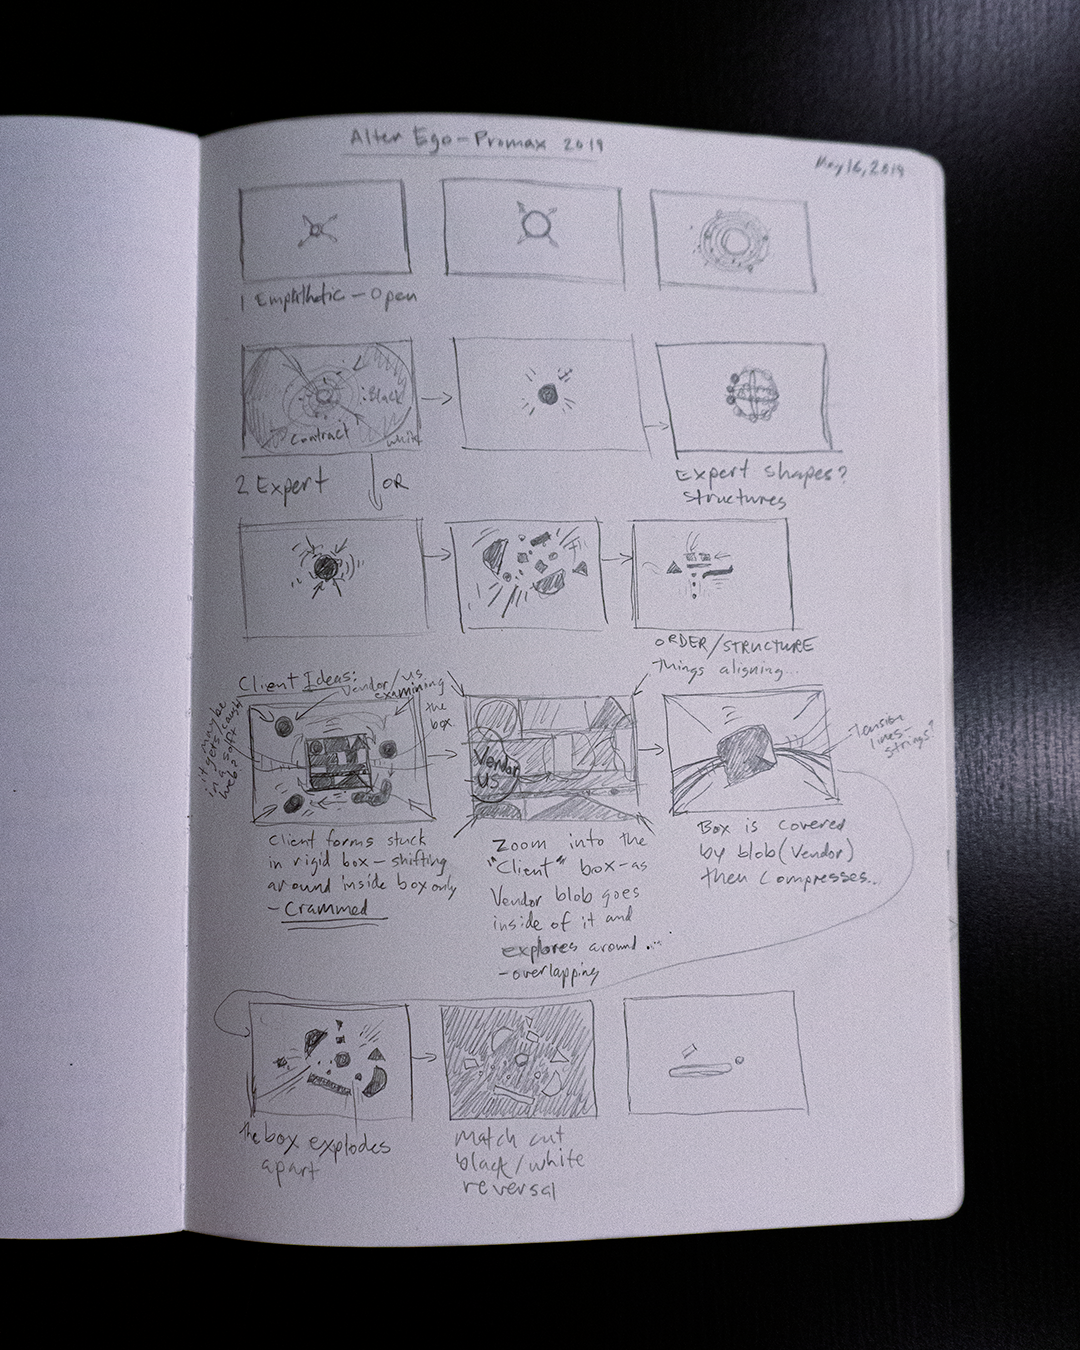 Alter Ego - Promax 2019
May 16, 2019
1 Empathetic - Open
Contract
Black
white
2 Expert
OR
Expert shapes?
Structures
ORDER/STRUCTURE
Things aligning...
Client Ideas:
Vendor/us
examining
the
box.
it maybe
gets caught
in a soft
web?
Vendor
us
Tension
lines-
strings?
Client forms stuck
in rigid box - shifting
around inside box only
- Crammed
Zoom into the
"Client" box - as
Vendor blob goes
inside of it and
explores around...
- overlapping
Box is covered
by blob (Vendor)
then compresses...
The box explodes
apart
Match cut
black/white
reversal